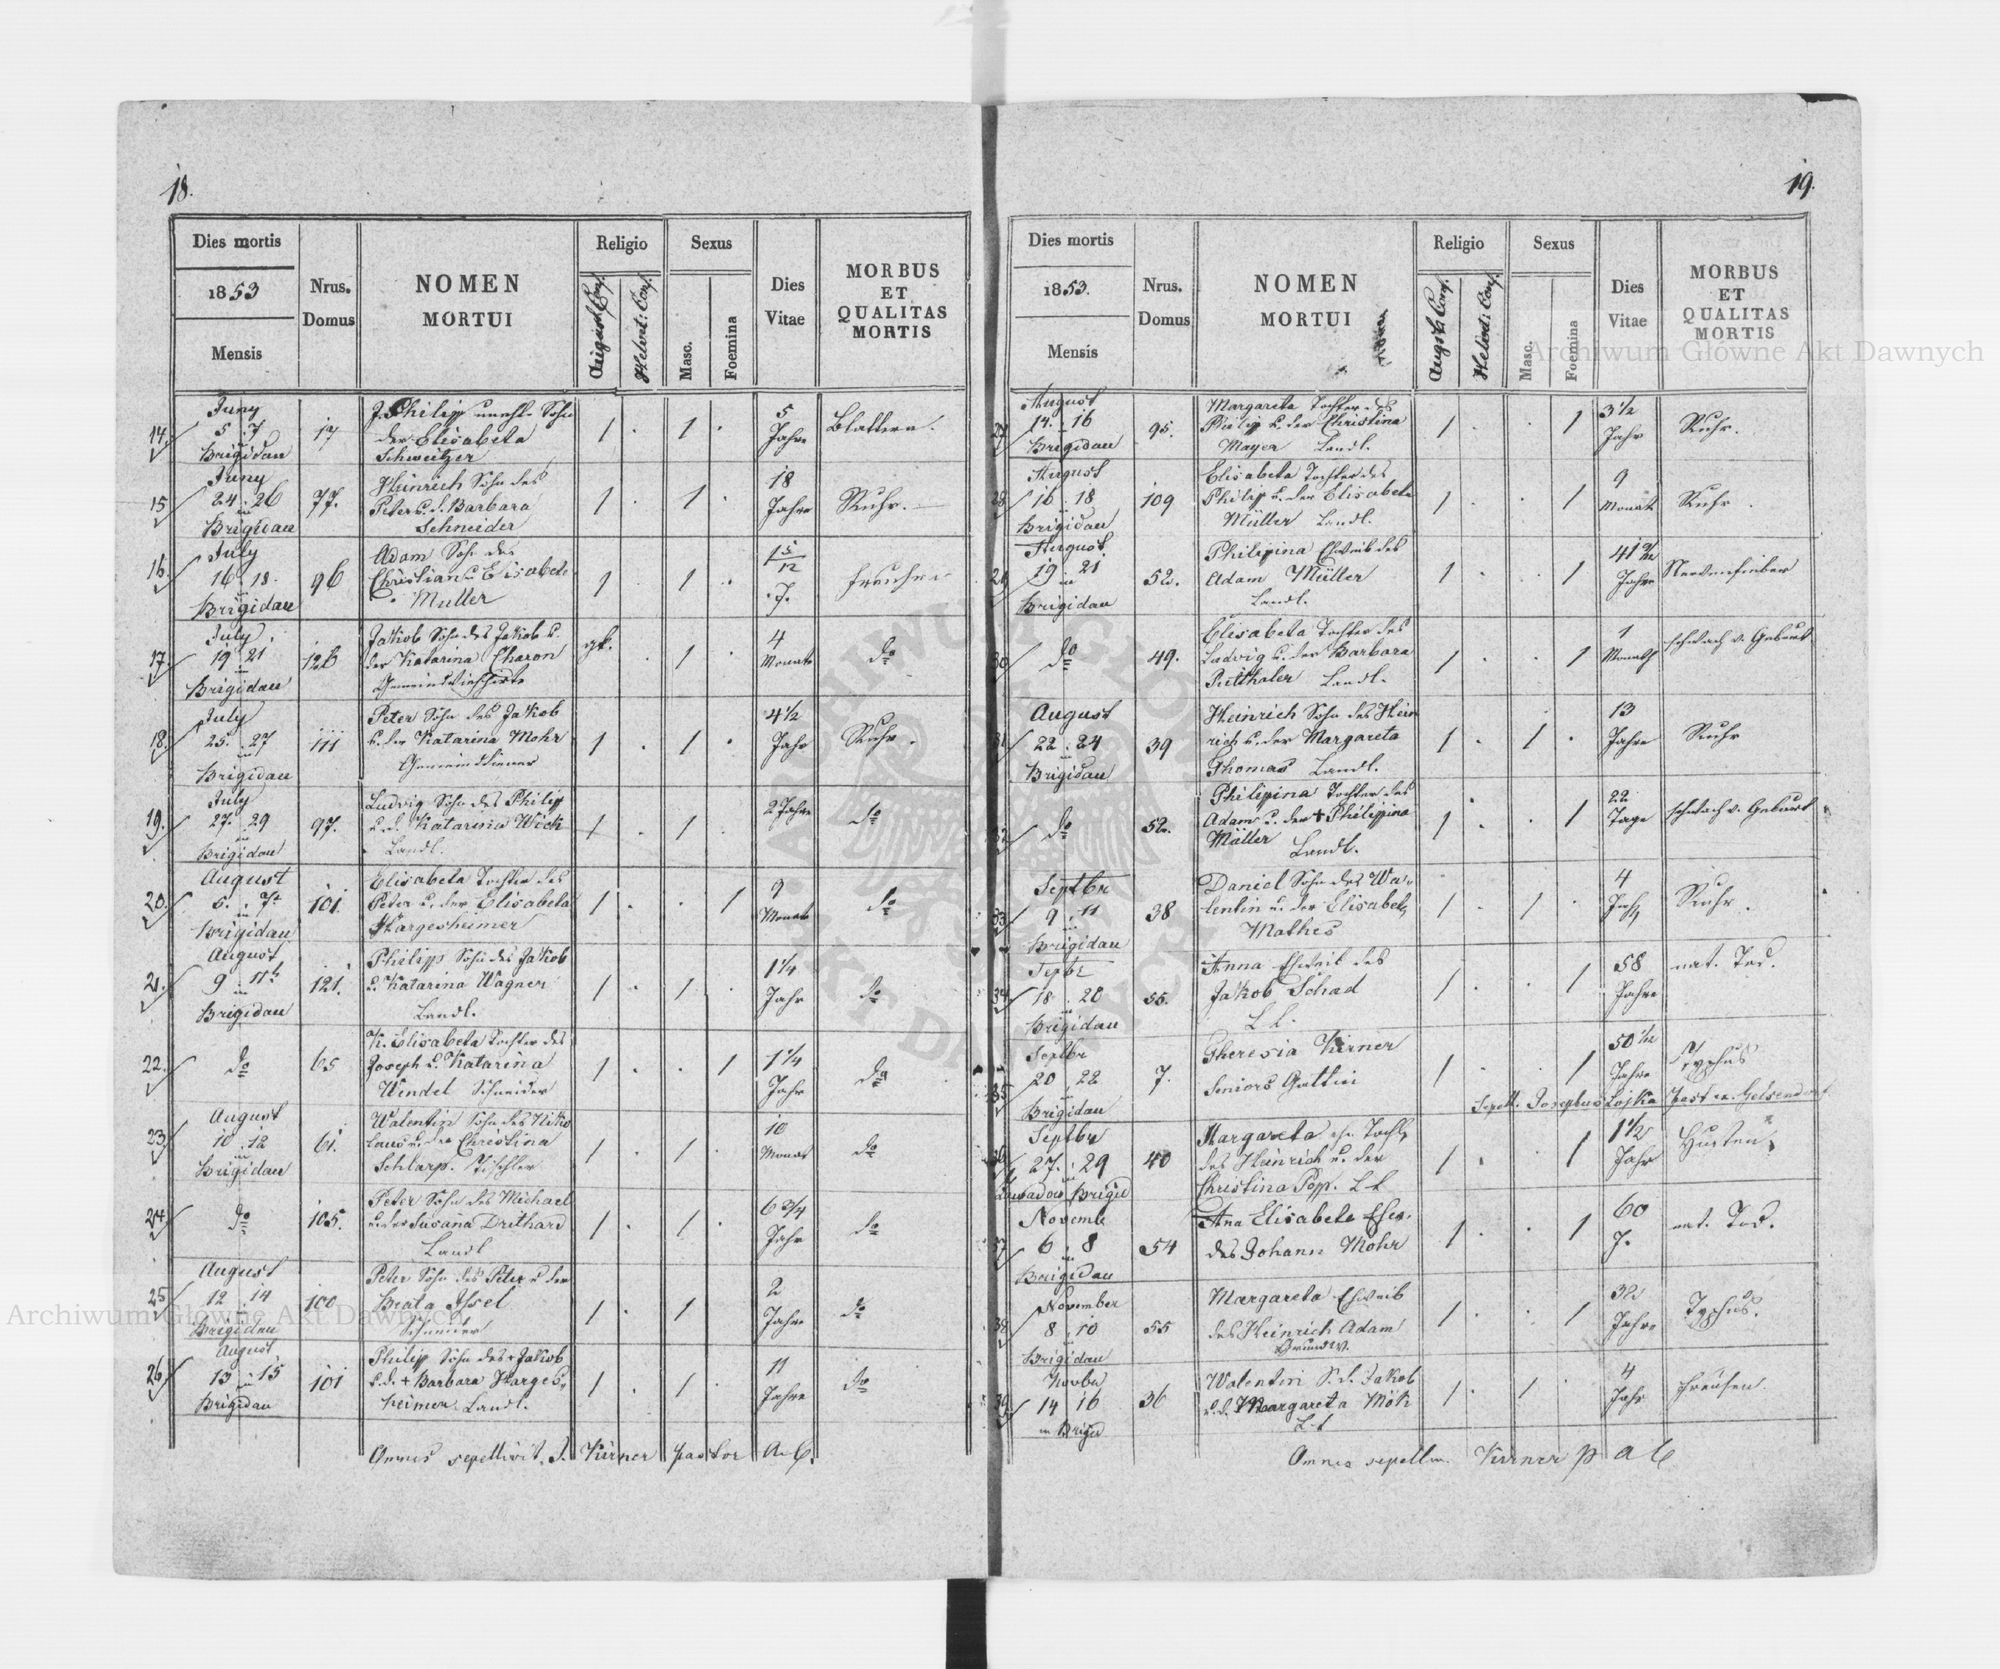 18.
Dies mortis
1853
Mensis
Nrus. Domus
NOMEN MORTUI
Religio
August: Conf.
Helvet: Conf.
Sexus
Masc.
Foemina
Dies Vitae
MORBUS ET QUALITAS MORTIS
14. Juny 5 7 in Brigidau 17 J. Philipp unehl. Sohn der Elisabeta Schweitzer 1 . 1 . 5 Jahre Blattern.
15 Juny 24 26 in Brigidau 77. Heinrich Sohn des Peter u. d. Barbara Schneider 1 . 1 . 18 Jahre Ruhr.
16 July 16. 18. in Brigidau 96 Adam Sohn des Christian u. Elisabeta Muller 1 1 . 1 5/12 J.
17. July 19 21 in Brigidau 126 Jakob Sohn des Jakob u. der Katarina Charon gk. . 1 . 4 Monate do
18. July 25. 27 in Brigidau 111 Peter Sohn des Jakob u. der Katarina Mohr Gemeinddiener 1 . 1 . 4 1/2 Jahr Ruhr.
19. July 27. 29 in Brigidau 97. Ludvig Sohn des Philipp u. d. Katarina Wick Landl. 1 . 1 . 2 Jahre do
20. August 5. 7. in Brigidau 101. Elisabeta Tochter des Peter u. der Elisabeta Hargesheimer 1 . . 1 9 Monate do
21. August 9 11 in Brigidau 121. Philipp Sohn des Jakob u. Katarina Wagner Landl. 1 . 1 . 1 1/4 Jahr do
22. do 65 K. Elisabeta Tochter des Joseph u. Katarina Wendel Schneider 1 . . 1 1 1/4 Jahr do
23 August 10 12 in Brigidau 61. Walentin Sohn des Nikolaus u. der Chrestina Schlarp. Tischler 1 . 1 . 10 Monat do
24 do 105. Peter Sohn des Michael u. der Susana Drithard Landl 1 . 1 . 6 3/4 Jahr do
25 August 12 14 in Brigidau 100 Peter Sohn des Peter u der Beata Issel Schneider 1 . 1 2 Jahre do
26 August 13 15 in Brigidau 101 Philipp Sohn des + Jakob u. d. + Barbara Hargesheimer Landl. 1 . 1 . 11 Jahre do
Omnes sepellivit. J. Kirner pastor A. C.
19.
Dies mortis
1853.
Mensis
Nrus. Domus
NOMEN MORTUI
Religio
Augst: Conf.
Helvet: Conf.
Sexus
Masc.
Foemina
Dies Vitae
MORBUS ET QUALITAS MORTIS
27 August 14. 16 in Brigidau 95. Margareta Tochter des Philip u. der Christina Mayer Landl. 1 . . 1 3 1/2 Jahr Ruhr.
28 August 16 18 in Brigidau 109 Elisabeta Tochter des Philipp u. der Elisabeta Müller Landl. 1 . . 1 9 Monat Ruhr.
29 August. 19 21 in Brigidau 52. Philipina Eheweib des Adam Müller Landl. 1 . . 1 Jahre Nervenfieber
30 do 49. Elisabeta Tochter des Ludvig u. der Barbara Landl. 1 . . 1 1 Monath schwach v. Geburt
31 August 22 24 in Brigidau 39 Heinrich Sohn des Heinrich u. der Margareta Thomas Landl. 1 . 1 . 13 Jahre Ruhr
32 do 52. Philipina Tochter des Adam u. der + Philippina Müller Landl. 1 . . 1 22 Tage schwach v. Geburt
33 Septbr 9 11 in Brigidau 38 Daniel Sohn des Walentin u. der Elisabet Mathes 1 . 1 . 4 Jahr Ruhr.
34 Septbr 18 20 in Brigidau 55. Anna Eheweib des Jakob Schad L l. 1 . . 1 58 Jahre nat. Tod.
35 Septbr 20 22 in Brigidau 7. Theresia Kirner Seniors Gattin 1 . . 1 50 1/2 Jahre Typhus
Sepelt. Josephus Lojka Past. in Gelsendorf
36 Septbr 27. 29 in Brigid 40 Margareta ehe. Tocht. des Heinrich u. der Christina Popp. L l 1 . . 1 1 1/2 Jahr Husten
37 Novembr 6 8 in Brigidau 54 Ana Elisabeta Ehew. des Johann Mohr 1 . . 1 60 J. nat. Tod.
38 November 8 10 Brigidau 55 Margareta Eheweib des Heinrich Adam Grundw. 1 . . 1 32 Jahre Typhus.
39 Novbr 14 16 in Brigid 36 Walentin S. d. Jakob u. d. Margareta Mök L l 1 . 1 . 4 Jahr
Omnes sepelliv. Kirner p a C
Archiwum Główne Akt Dawnych
Archiwum Główne Akt Dawnych